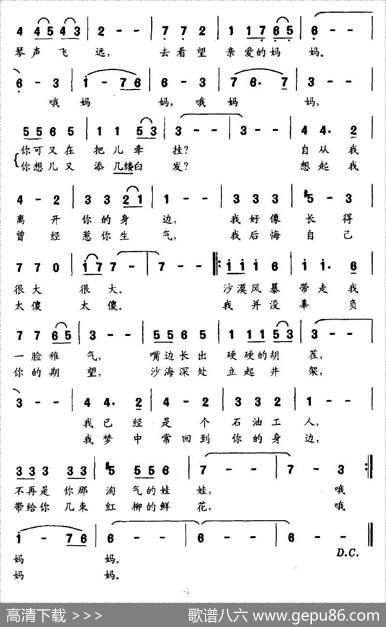 4 4 5 4 3 | 2 - - | 7 7 2 | 1 1 7 6 5 | 6 - - |
琴声飞远, 去看望 亲爱的妈 妈。
6 - 3 | 1 - 7 6 | 6 - 3 | 7 6. 7 | 3 - - |
哦 妈 妈, 哦 妈 妈,
5 5 6 5 | 1 1 5 3 | 3 - - | 3 - - | 4 4. 2 |
你可又在 把儿牵 挂? 自从我
你想儿又 添几缕白 发? 想起我
4 - 2 | 3 3 2 1 | 3 - - | 3 3 3 | #5 - 3 |
离开 你的身 边, 我好像 长得
曾经 惹你生 气, 我后悔 自己
7 7 0 | 1 7 7 - | 7 - - | 1 1 1 6 | 1 1. 6 |
很大 很大。 沙漠风暴 带走我
太傻 太傻。 我并没 辜负
7 7 6 5 | 3 - - | 5 5 6 5 | 1 1 1 5 3 | 3 - - |
一脸稚 气, 嘴边长出 硬硬的胡 茬,
你的期 望, 沙海深处 立起井 架,
3 - - | 4 4. 2 | 4 - 2 | 3 3 2 1 | 3 - - |
我已经是个 石油工人,
我梦中常回到 你的身边,
3 3 3 3 3 | #5 5 5 5 | 7 - - | 7 - 3 |
不再是你那 淘气的娃 娃, 哦
带给你几束 红柳的鲜 花, 哦
1 - 7 6 | 6 - - | 6 - - | 6 - - |
D.C.
妈 妈。
妈 妈。
高清下载 >>> 歌谱八六 www.gepu86.com